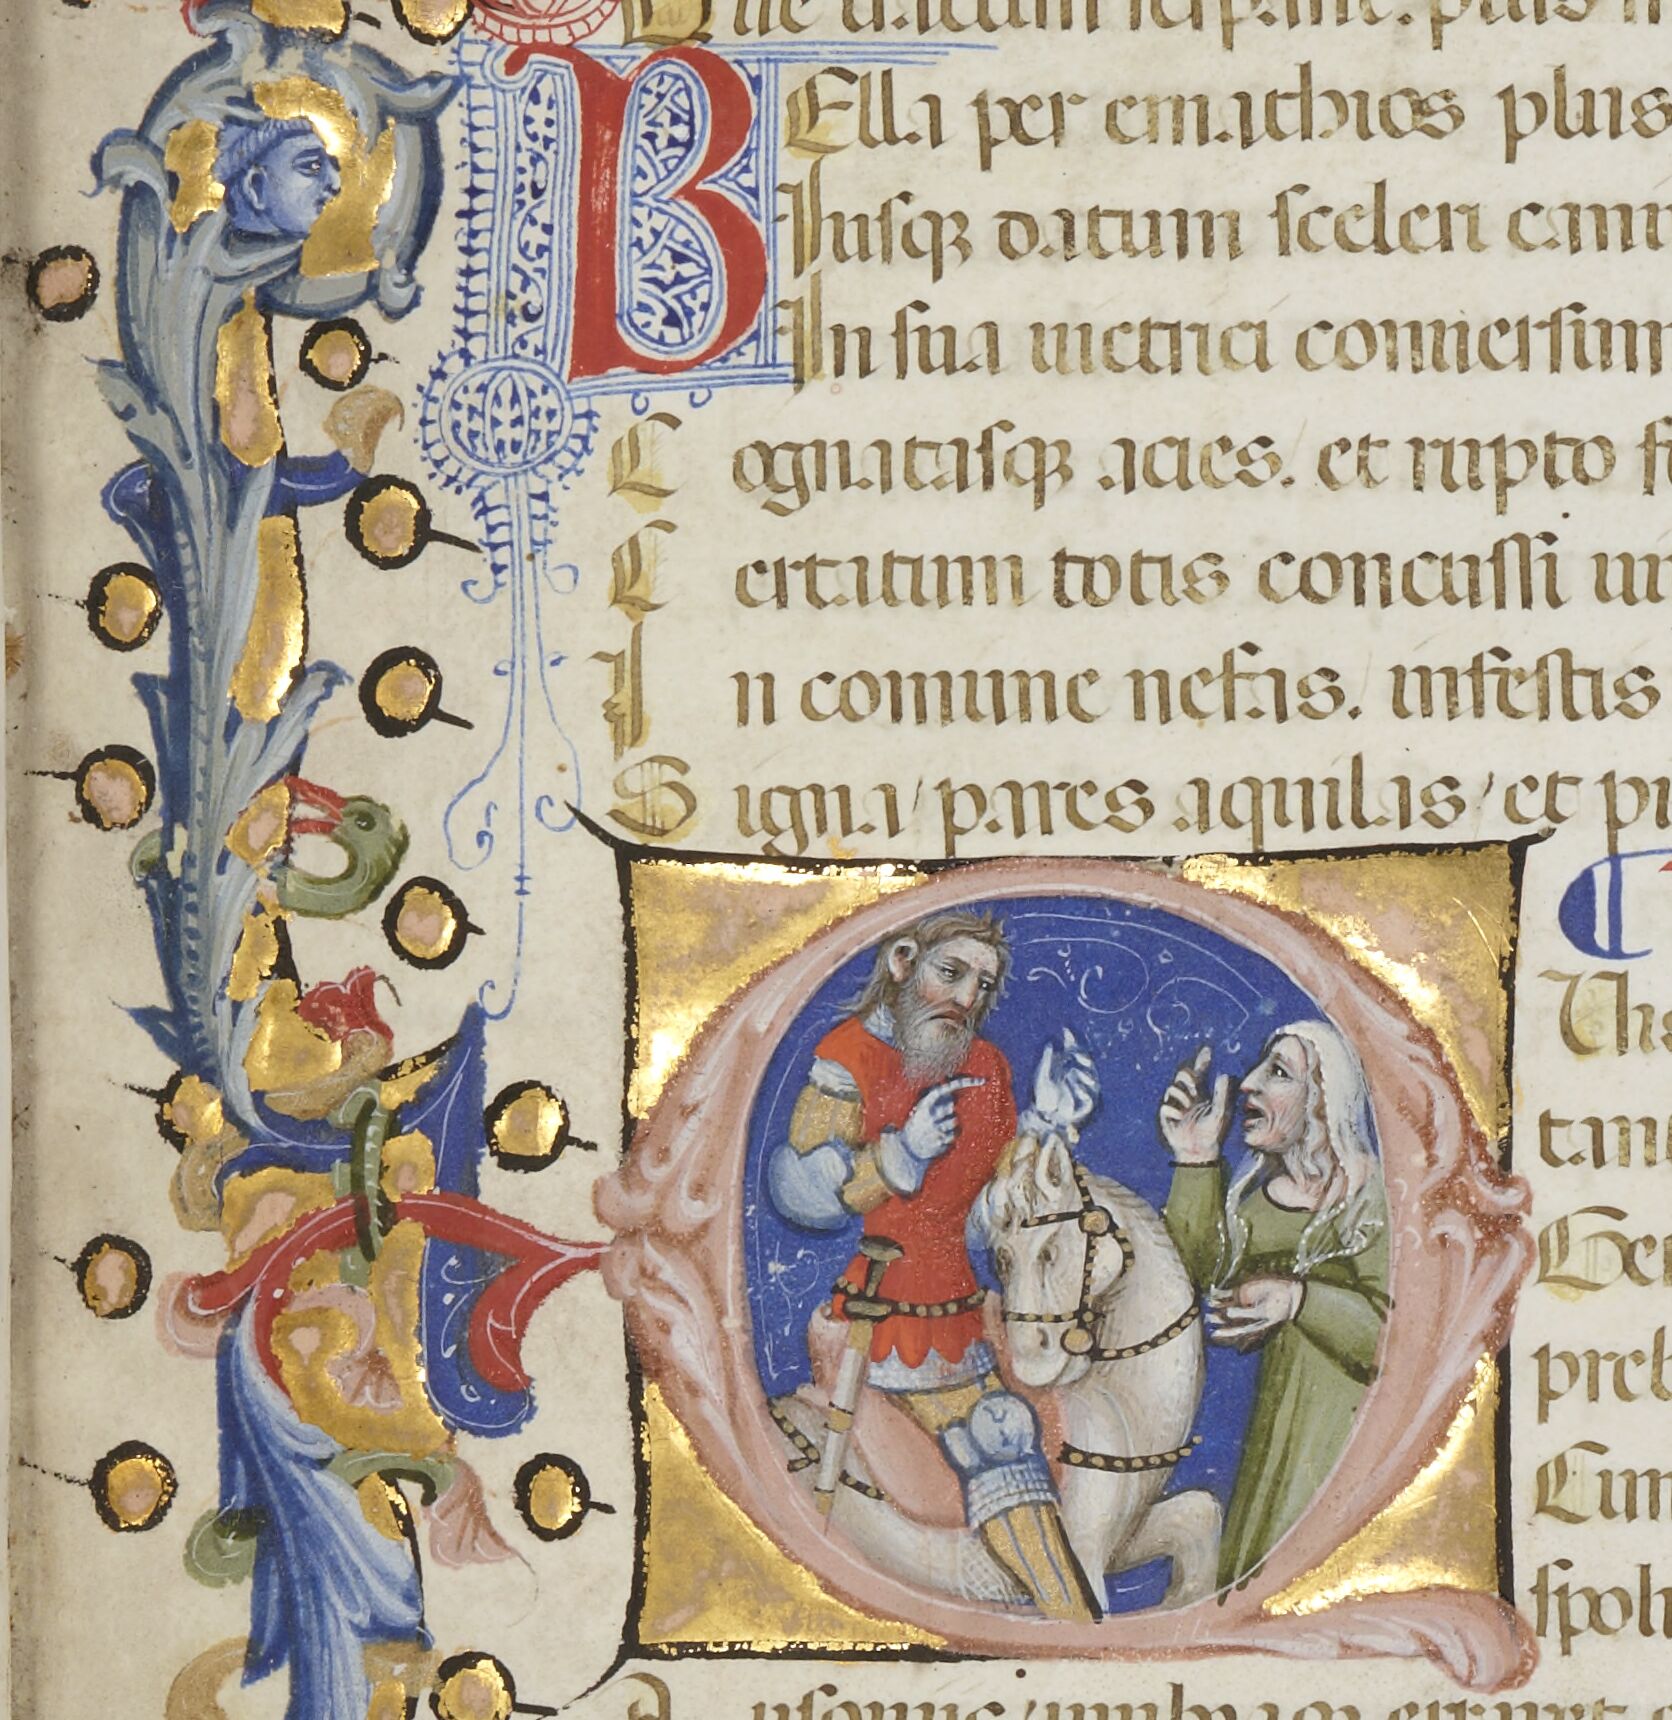 BElla per emathios plus
Iusq; datum sceleri cani
In sua uictrici conuersum
Cognatasq; acies. et rupto fe
Certatum totis concussi uir
In comune nefas. infestis
Signa / pares aquilas / et pi
tant
preb
spoli